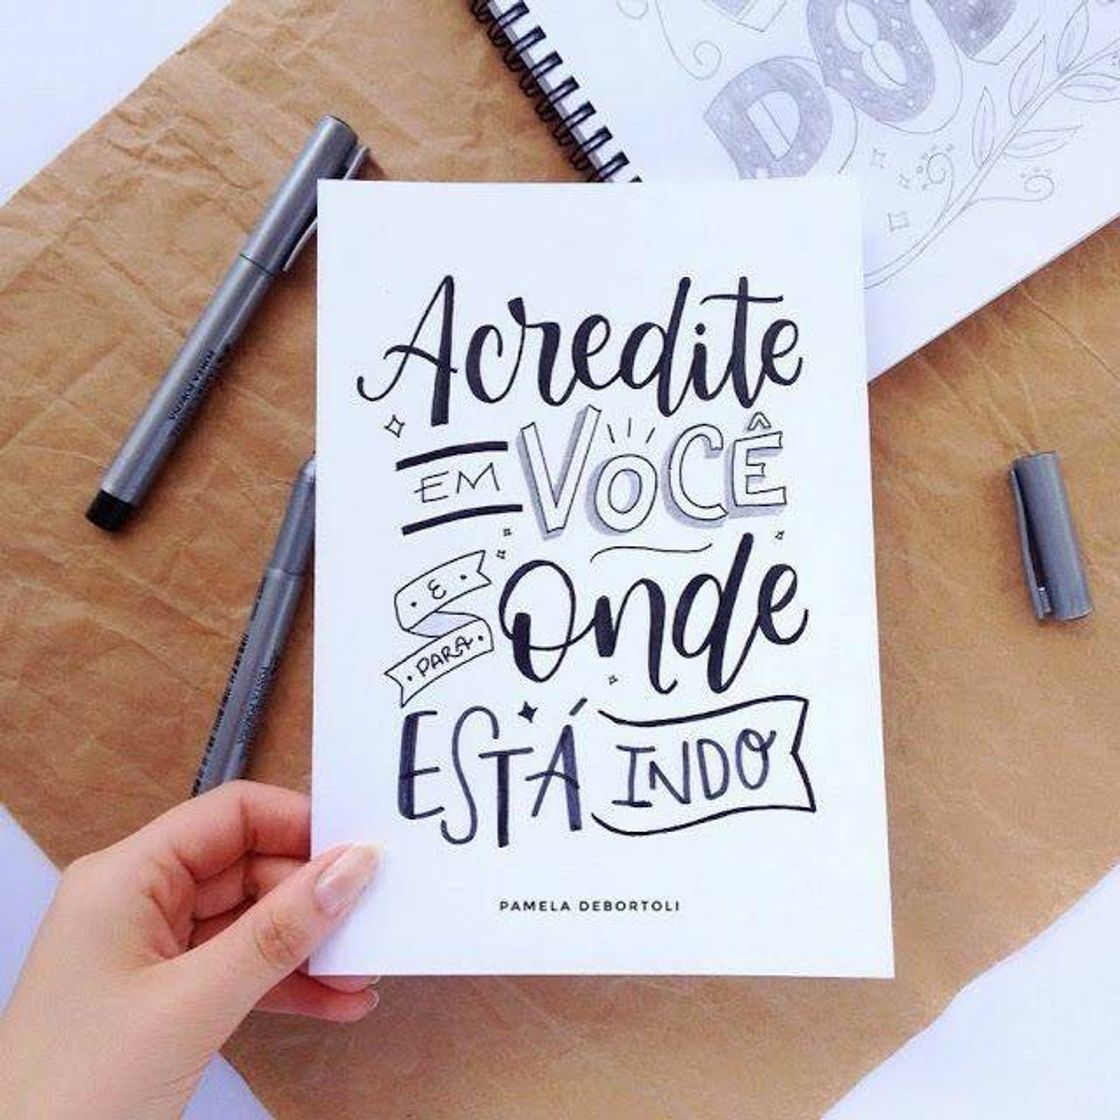 Acredite
EM VOCÊ
E PARA Onde
ESTÁ INDO
PAMELA DEBORTOLI